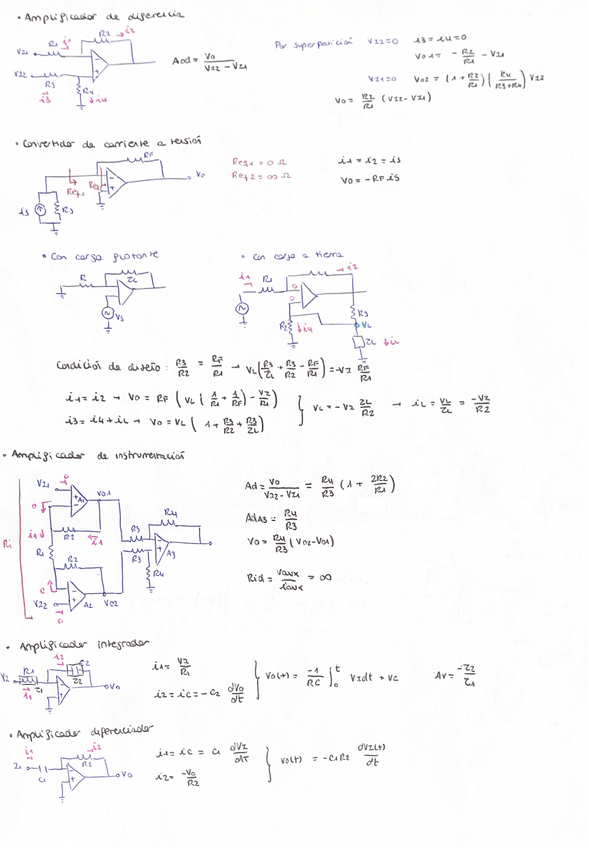 • Amplificador de diferencia
R1 i1 R2 i2
VI1
VI2
R3 i3 R4 i4
Aod = Vo / (VI2 - VI1)
Por superposición VI2=0 i3=i4=0
Vo1 = -R2/R1 - VI1
VI1=0 Vo2 = (1 + R2/R1) (R4/(R3+R4)) VI2
Vo = R2/R1 (VI2-VI1)
• Convertidor de corriente a tensión
RF
Vo
iS RS
Req1 = 0 Ω
Req2 = ∞ Ω
i1 = i2 = iS
Vo = -RF iS
• Con carga flotante
R ZL
VS
• Con carga a tierra
i1 R1 i2
0
0
R2 i4 R3
VL
ZL iL
Condición de diseño: R3/R2 = RF/R1 → VL(R3/ZL + R3/R2 - RF/R1) = -VI RF/R1
i1 = i2 → Vo = RF (VL (1/R1 + 1/RF) - VI/R1)
i3 = i4 + iL → Vo = VL (1 + R3/R2 + R3/ZL)
VL = -VI ZL/R2 → iL = VL/ZL = -VI/R2
• Amplificador de instrumentación
VI1 0 A1 Vo1
0
R2
i1 i1
Ri R1
R3 R4
R3 A3
R2
R4
VI2 0 A2 Vo2
Ad = Vo/(VI2-VI1) = R4/R3 (1 + 2R2/R1)
AdA3 = R4/R3
Vo = R4/R3 (Vo2-Vo1)
Rid = Vaux/iaux = ∞
• Amplificador integrador
VI R1 Z1 i1 i2 C2 Z2 Vo
i1 = VI/R1
i2 = iC = -C2 dVo/dt
Vo(t) = -1/RC ∫0t VI dt + VC
Av = -Z2/Z1
• Amplificador diferenciador
i1 C1 i2 R2 Vo
i1 = iC = C1 dVI/dt
i2 = -Vo/R2
Vo(t) = -C1R2 dVI(t)/dt